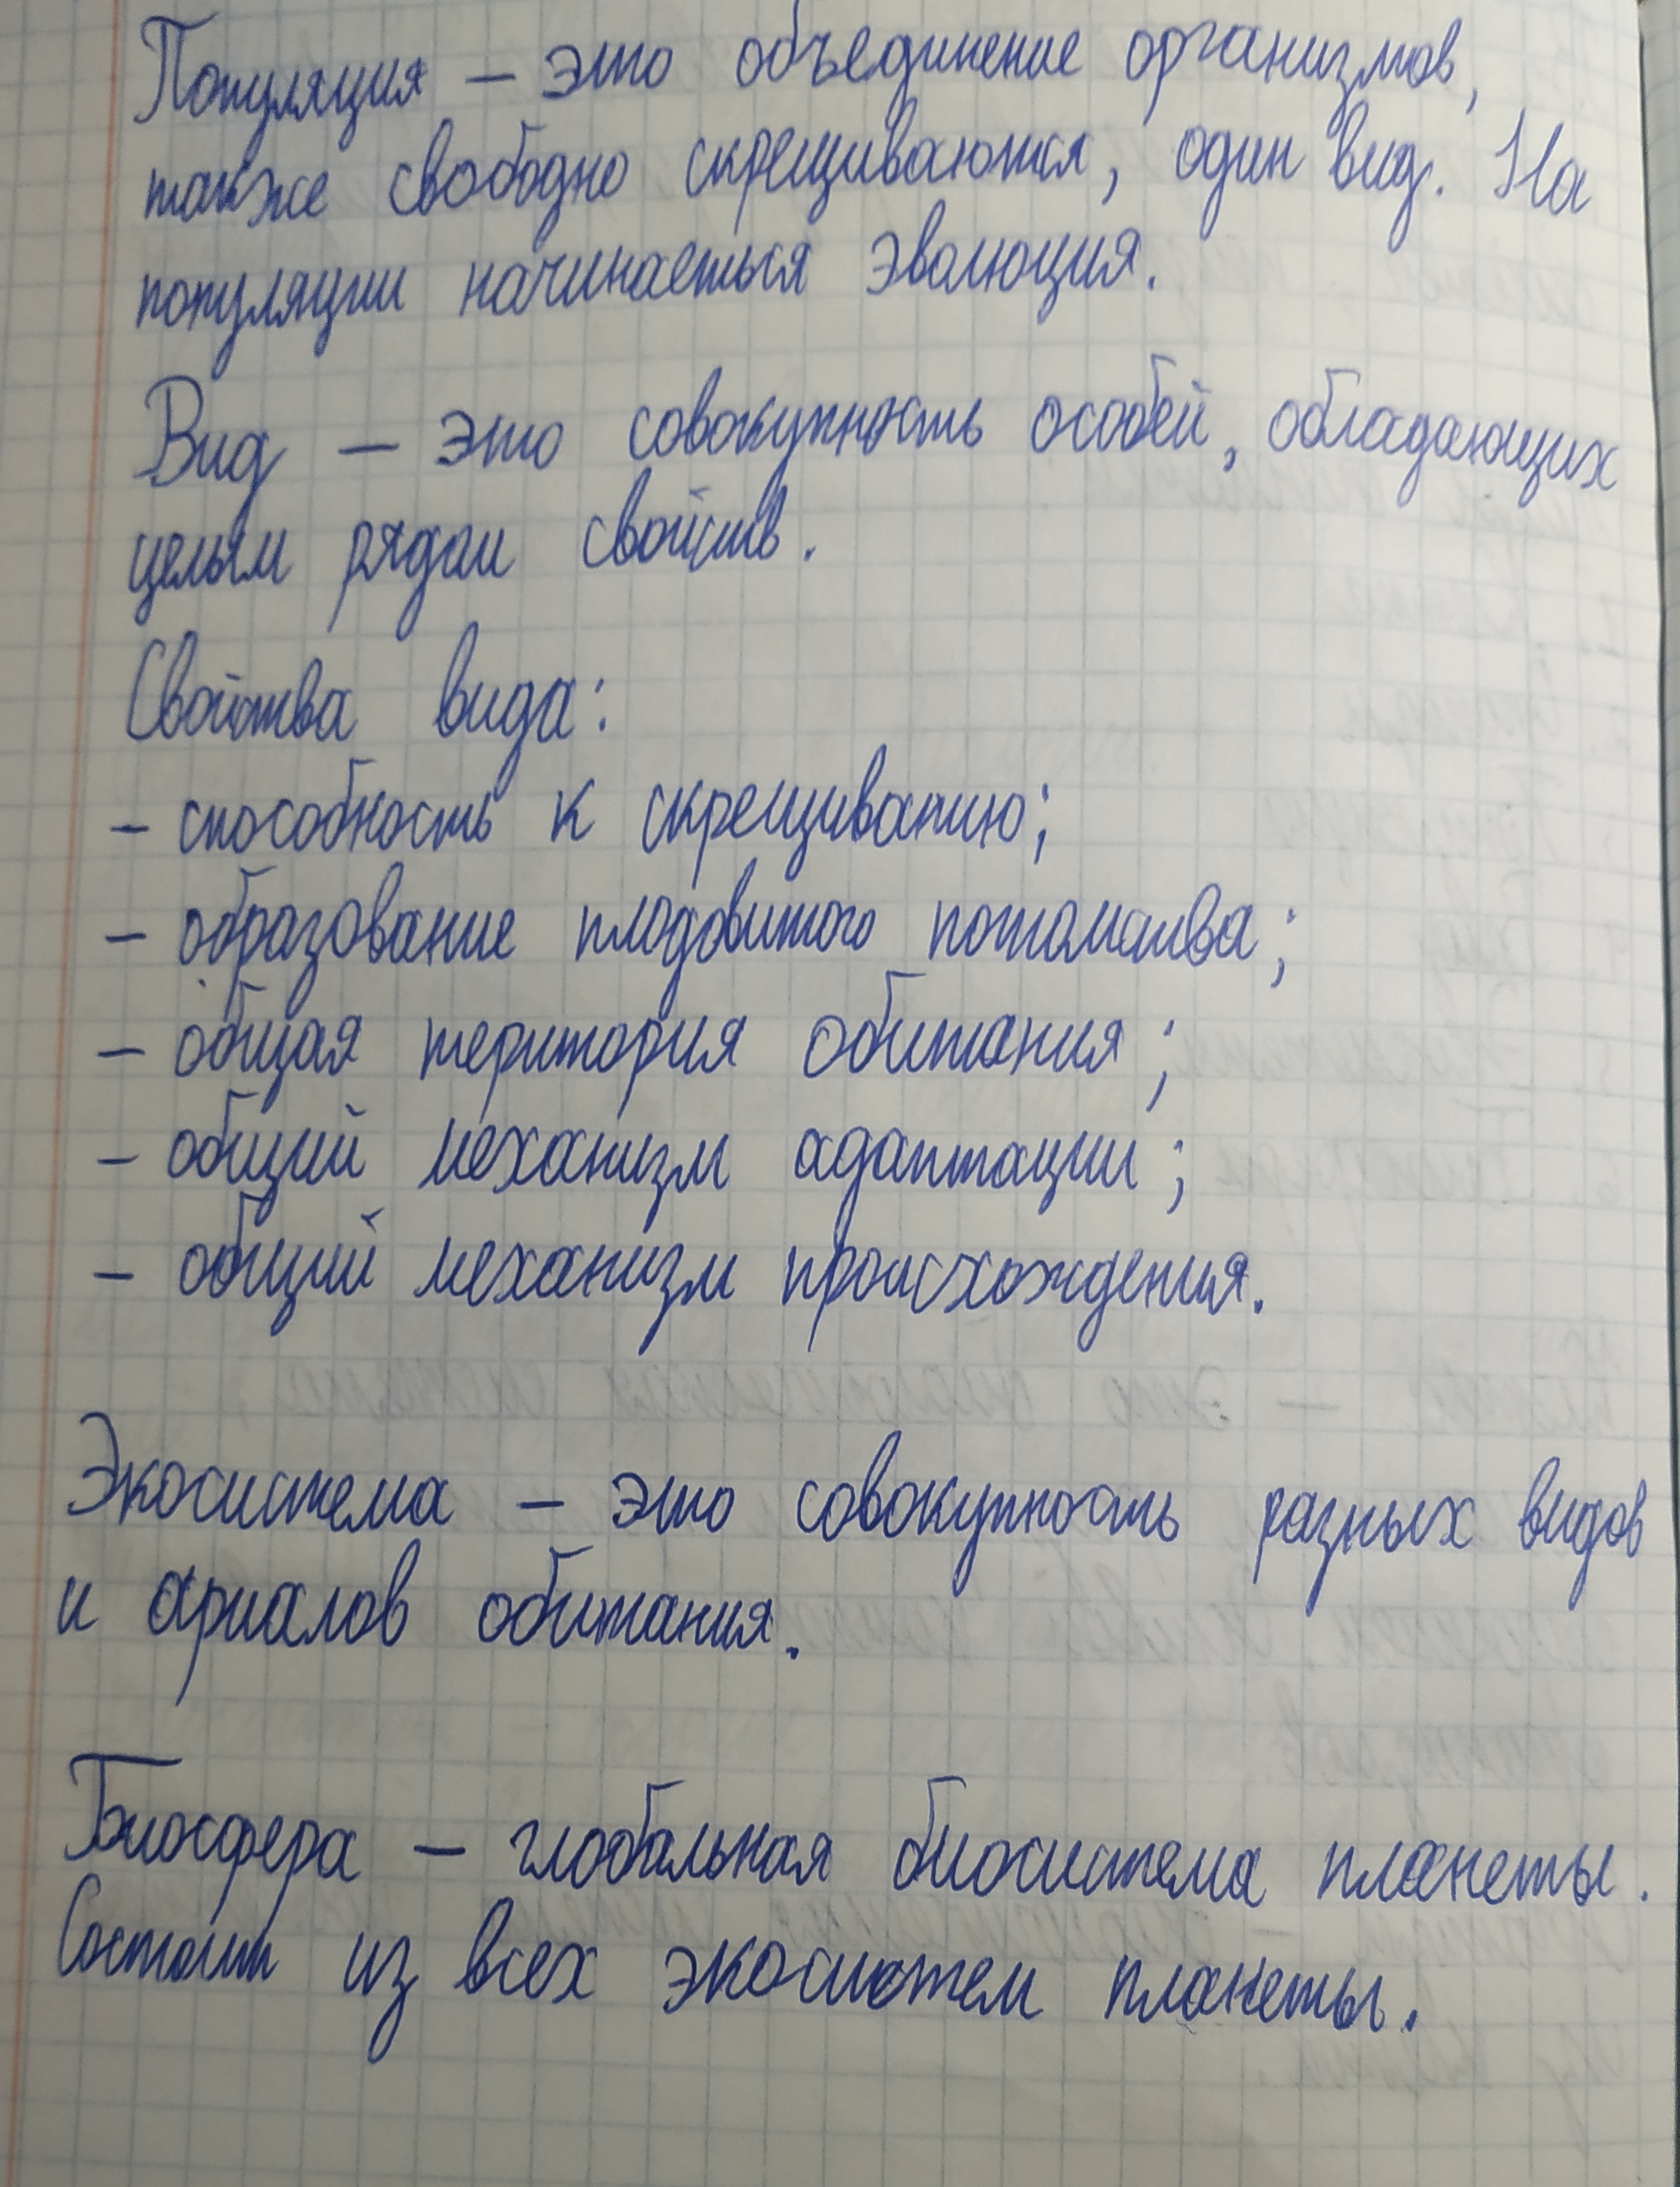 Популяция – это объединение организмов,
также свободно скрещиваются, один вид. На
популяции начинаеться эволюция.
Вид – это совокупность особей, обладающих
целым рядом свойств.
Свойства вида:
– способность к скрещиванию;
– образование плодовитого потомства;
– общая територия обитания;
– общий механизм адаптации;
– общий механизм происхождения.
Экосистема – это совокупность разных видов
и ариалов обитания.
Биосфера – глобальная биосистема планеты.
Состоит из всех экосистем планеты.